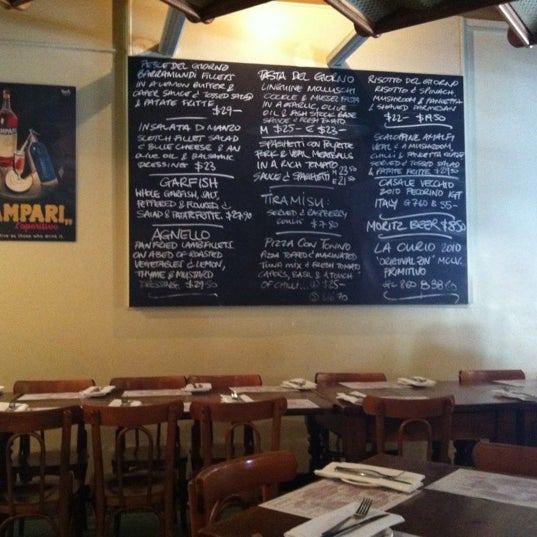 PESCE DEL GIORNO
BARRAMUNDI FILLETS
IN A LEMON BUTTER &
CAPER SAUCE & TOSSED SALAD
& PATATE FRITTE
$29-
INSALATA DI MANZO
SCOTCH FILLET SALAD
& BLUE CHEESE & AN
OLIVE OIL & BALSAMIC
DRESSING $23
GARFISH
WHOLE GARFISH, SALT,
PEPPERED & FLOURED &
SALAD & PATATE FRITTE. $27.90
AGNELLO
PAN FRIED LAMB FILLETS
ON A BED OF ROASTED
VEGETABLES & LEMON,
THYME & MUSTARD
DRESSING $29.50
PASTA DEL GIORNO
LINGUINE MOLLUSCHI
COCKLE & MUSSEL PASTA
IN A GARLIC, OLIVE
OIL & FISH STOCK BASE
SAUCE & FRESH TOMATO
M $25- E $23-
SPAGHETTI CON POLPETTE
PORK & VEAL MEATBALLS
IN A RICH TOMATO
SAUCE & SPAGHETTI
M 23.50
E 21.50
TIRAMISU:
SERVED & RASPBERRY
COULIS $7.80
PIZZA CON TONNO
PIZZA TOPPED & MARINATED
TUNA MIX & FRESH TOMATO
CAPERS, BASIL & A TOUCH
OF CHILLI... $25-
RISOTTO DEL GIORNO
RISOTTO & SPINACH,
MUSHROOM & PANCETTA
& SHAVED PARMESAN
$22- $19.50
SCALOPPINE AMALFI
VEAL & A MUSHROOM,
CHILLI & PANCETTA
SERVED & TOSSED SALAD &
PATATE FRITTE $29.50
CASALE VECCHIO
2010 PECORINO IGT
ITALY G 7.60 B 35
MORITZ BEER $8.50
LA CURIO 2010
"ORIGINAL ZIN" MCLV.
PRIMITIVO
GL 8.60 B 38
CAMPARI,,
l'aperitivo